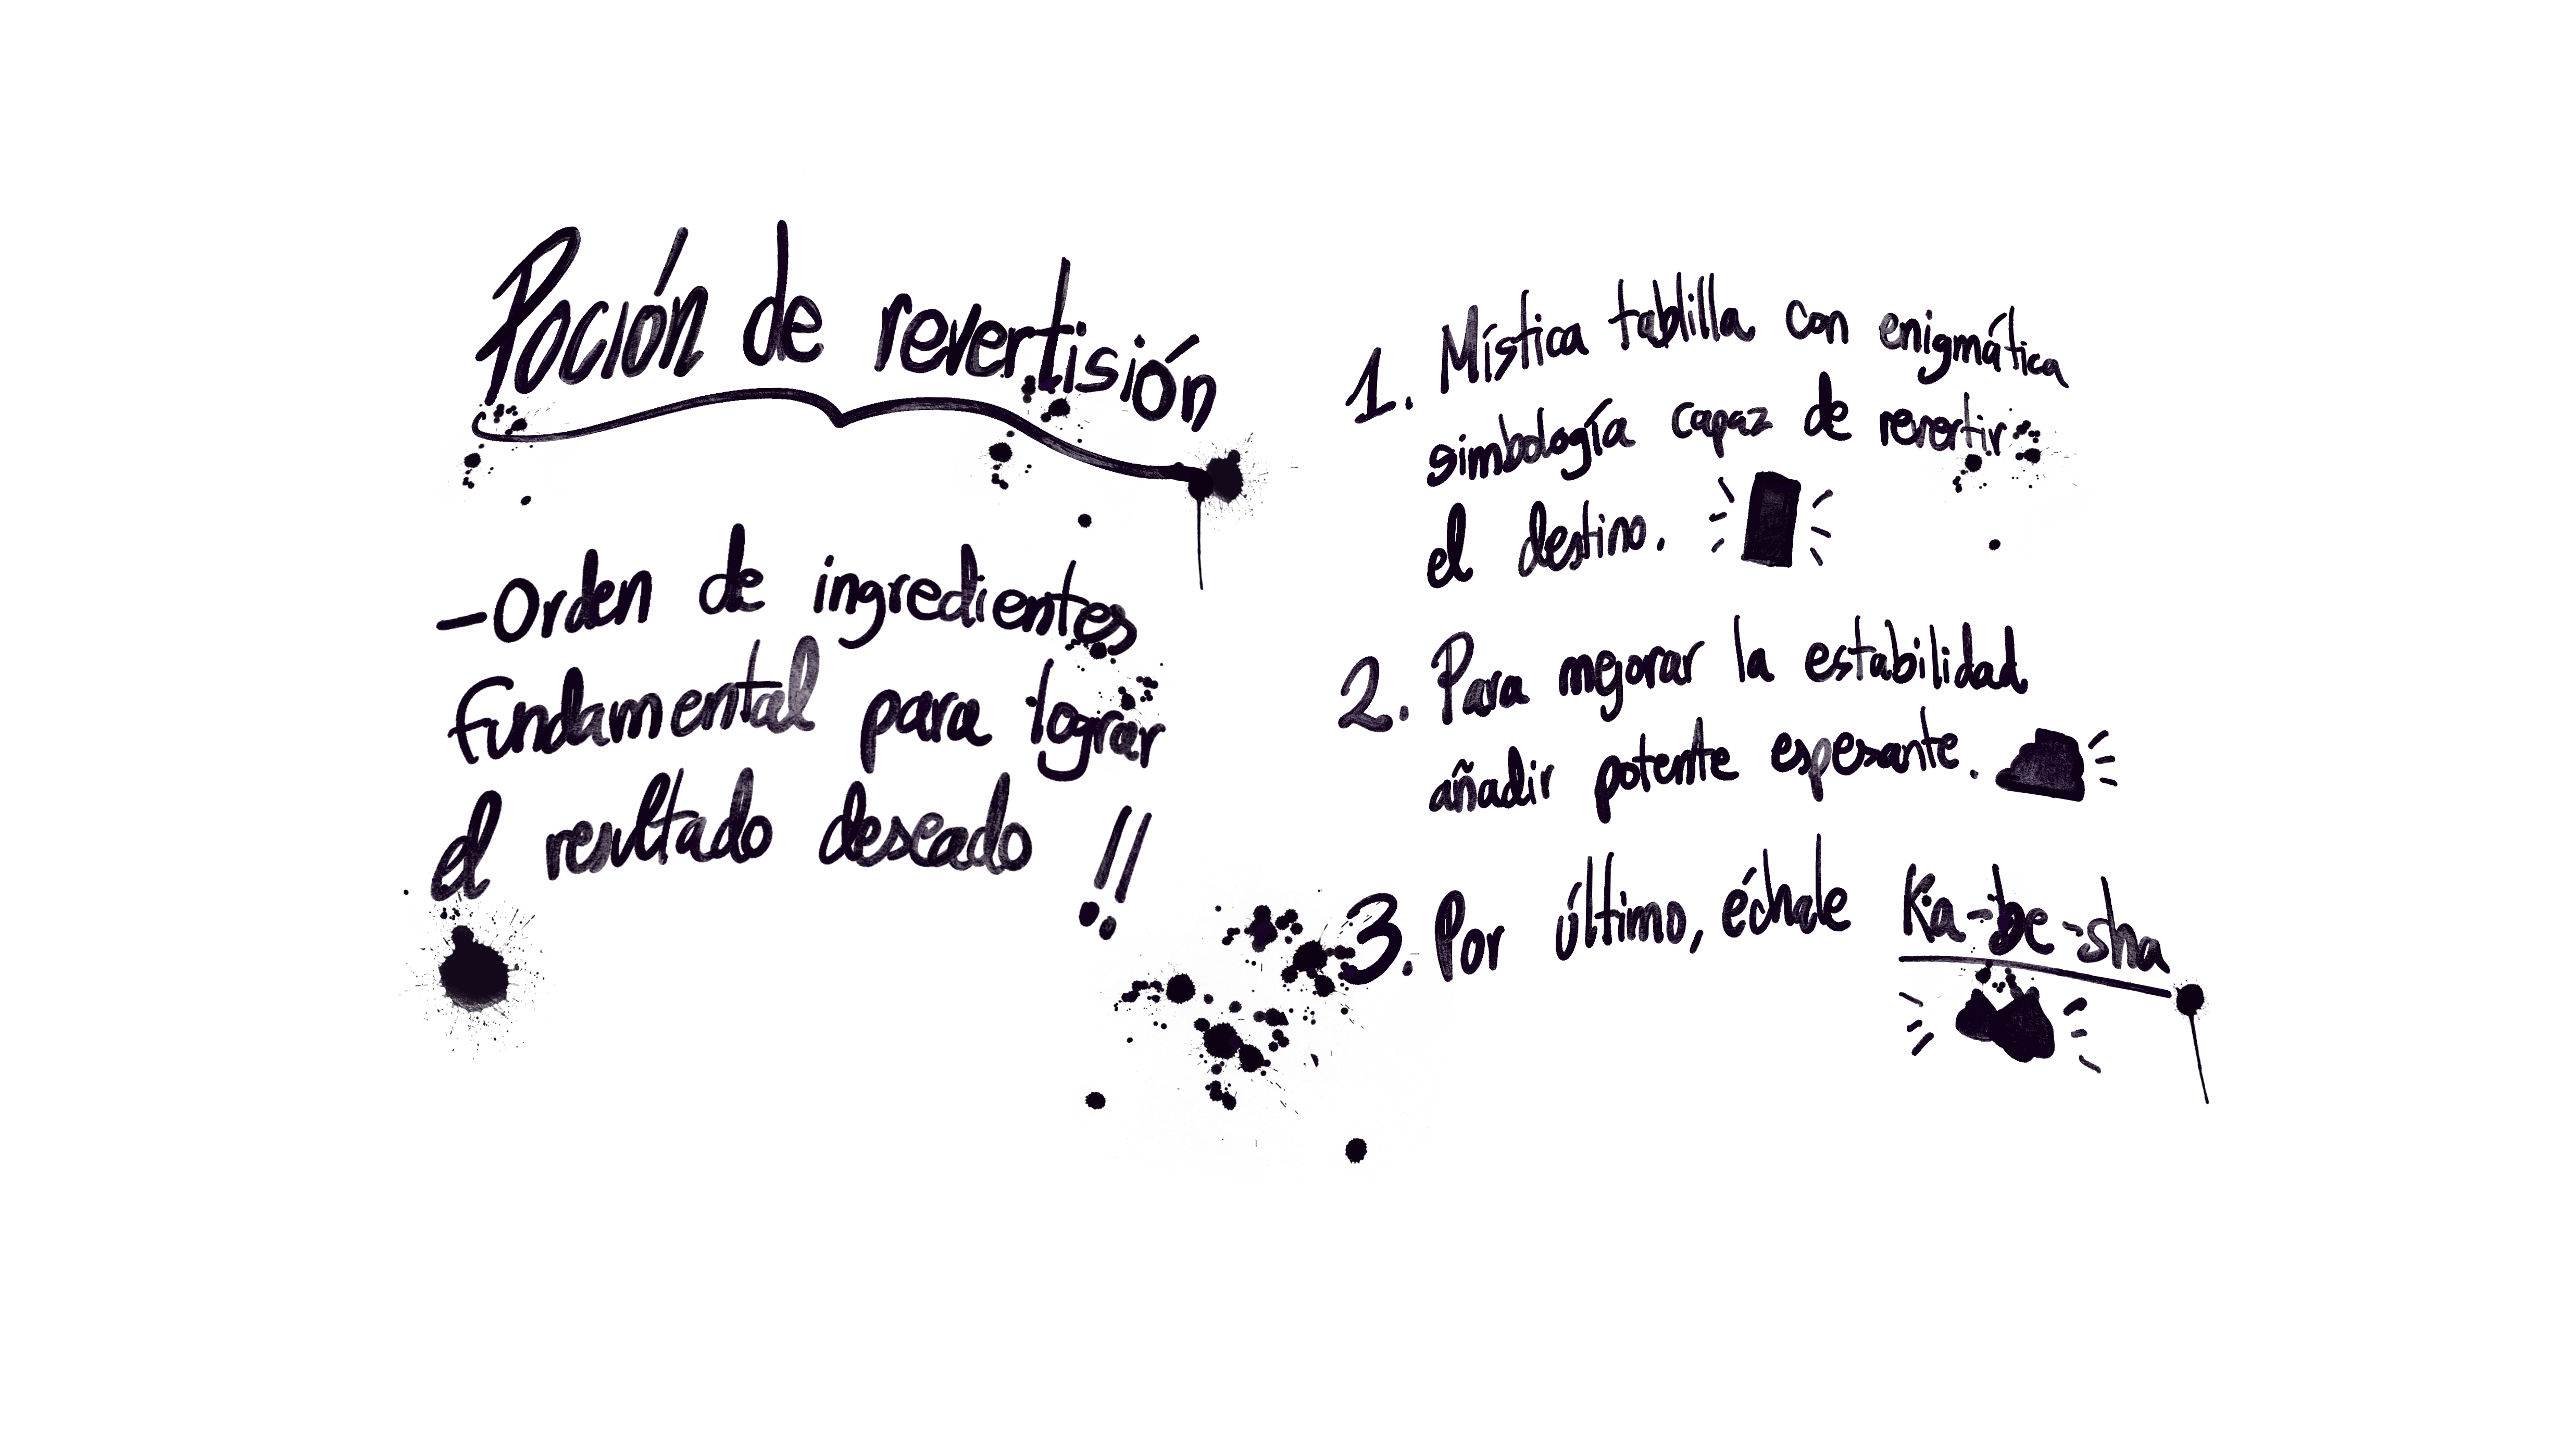 Poción de revertisión
-Orden de ingredientes
fundamental para lograr
el resultado deseado !!
1. Mística tablilla con enigmática
simbología capaz de revertir
el destino.
2. Para mejorar la estabilidad
añadir potente espesante.
3. Por último, échale Ka-be-sha